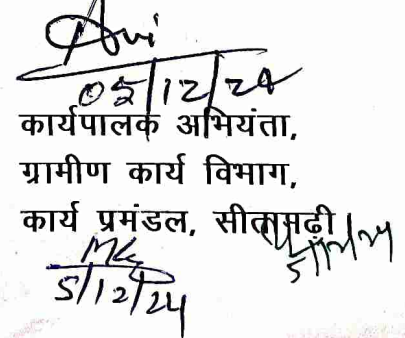 05/12/24
कार्यपालक अभियंता,
ग्रामीण कार्य विभाग,
कार्य प्रमंडल, सीतामढ़ी
5/12/24